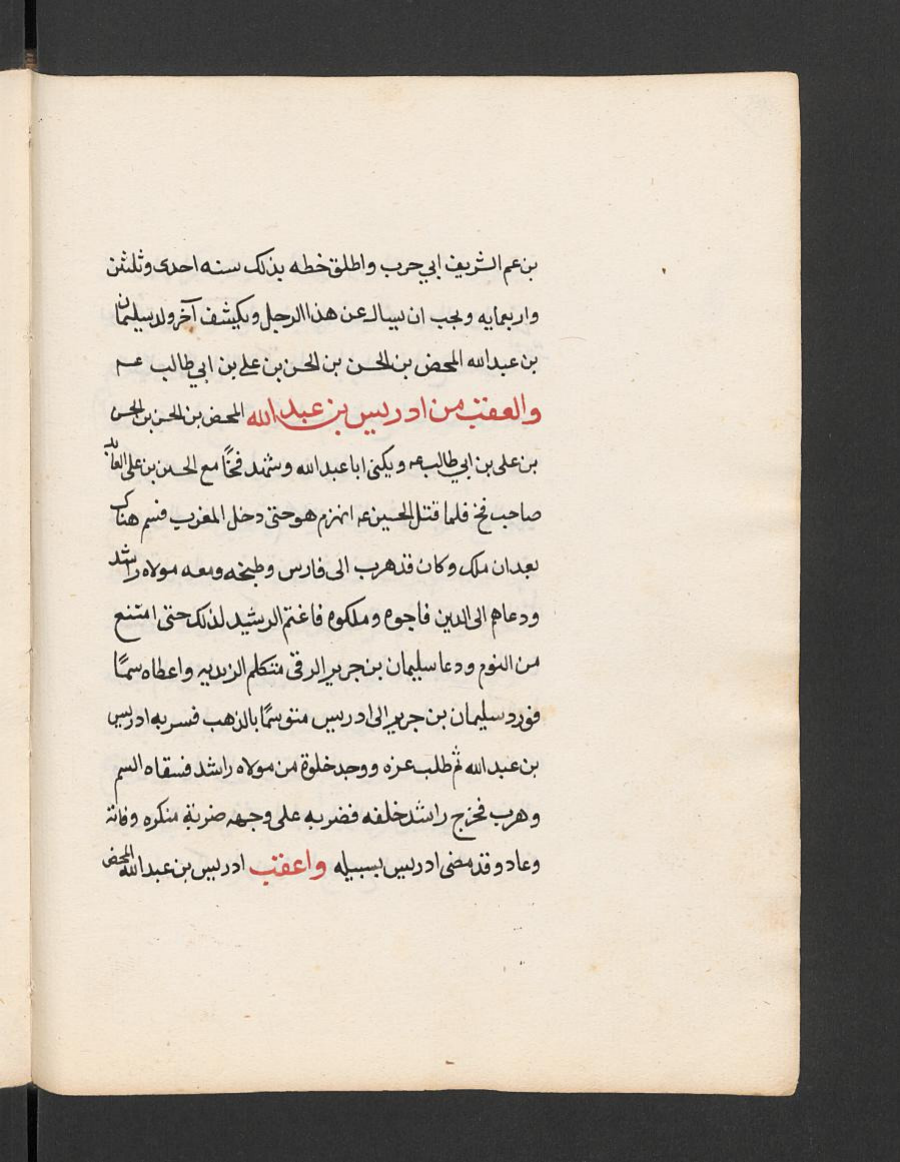 بن عم الشريف ابي حرب واطلق خطه بذلك سنه احدى وثلثن
واربعمايه ويجب ان يسال عن هذا الرجل ويكشف آخر ولد سليمان
بن عبدالله المحض بن الحسن بن الحسن بن علي بن ابي طالب عم
والعقب من ادريس بن عبد الله المحض بن الحسن بن الحسن
بن على بن ابي طالب عه ويكنى ابا عبدالله وشهد فخًا مع الحسين بن على العابد
صاحب فخ فلما قتل الحسين عه انهزم هو حتى دخل المغرب فسم هناك
بعد ان ملك وكان قد هرب الى فارس وطنجه ومعه مولاه راشد
ودعاهم الى الدين فاجوه وملكوه فاغتم الرشيد لذلك حتى امتنع
من النوم ودعا سليمان بن جرير الرقى متكلم الزيديه واعطاه سمًا
فورد سليمان بن جرير الى ادريس متوسمًا بالذهب فسر به ادريس
بن عبد الله ثم طلب عزه ووجد خلوة من مولاه راشد فسقاه السم
وهرب فخرج راشد خلفه فضربه على وجهه ضربة منكره وفاته
وعاد وقد مضى ادريس بسبيله واعقب ادريس بن عبدالله المحض